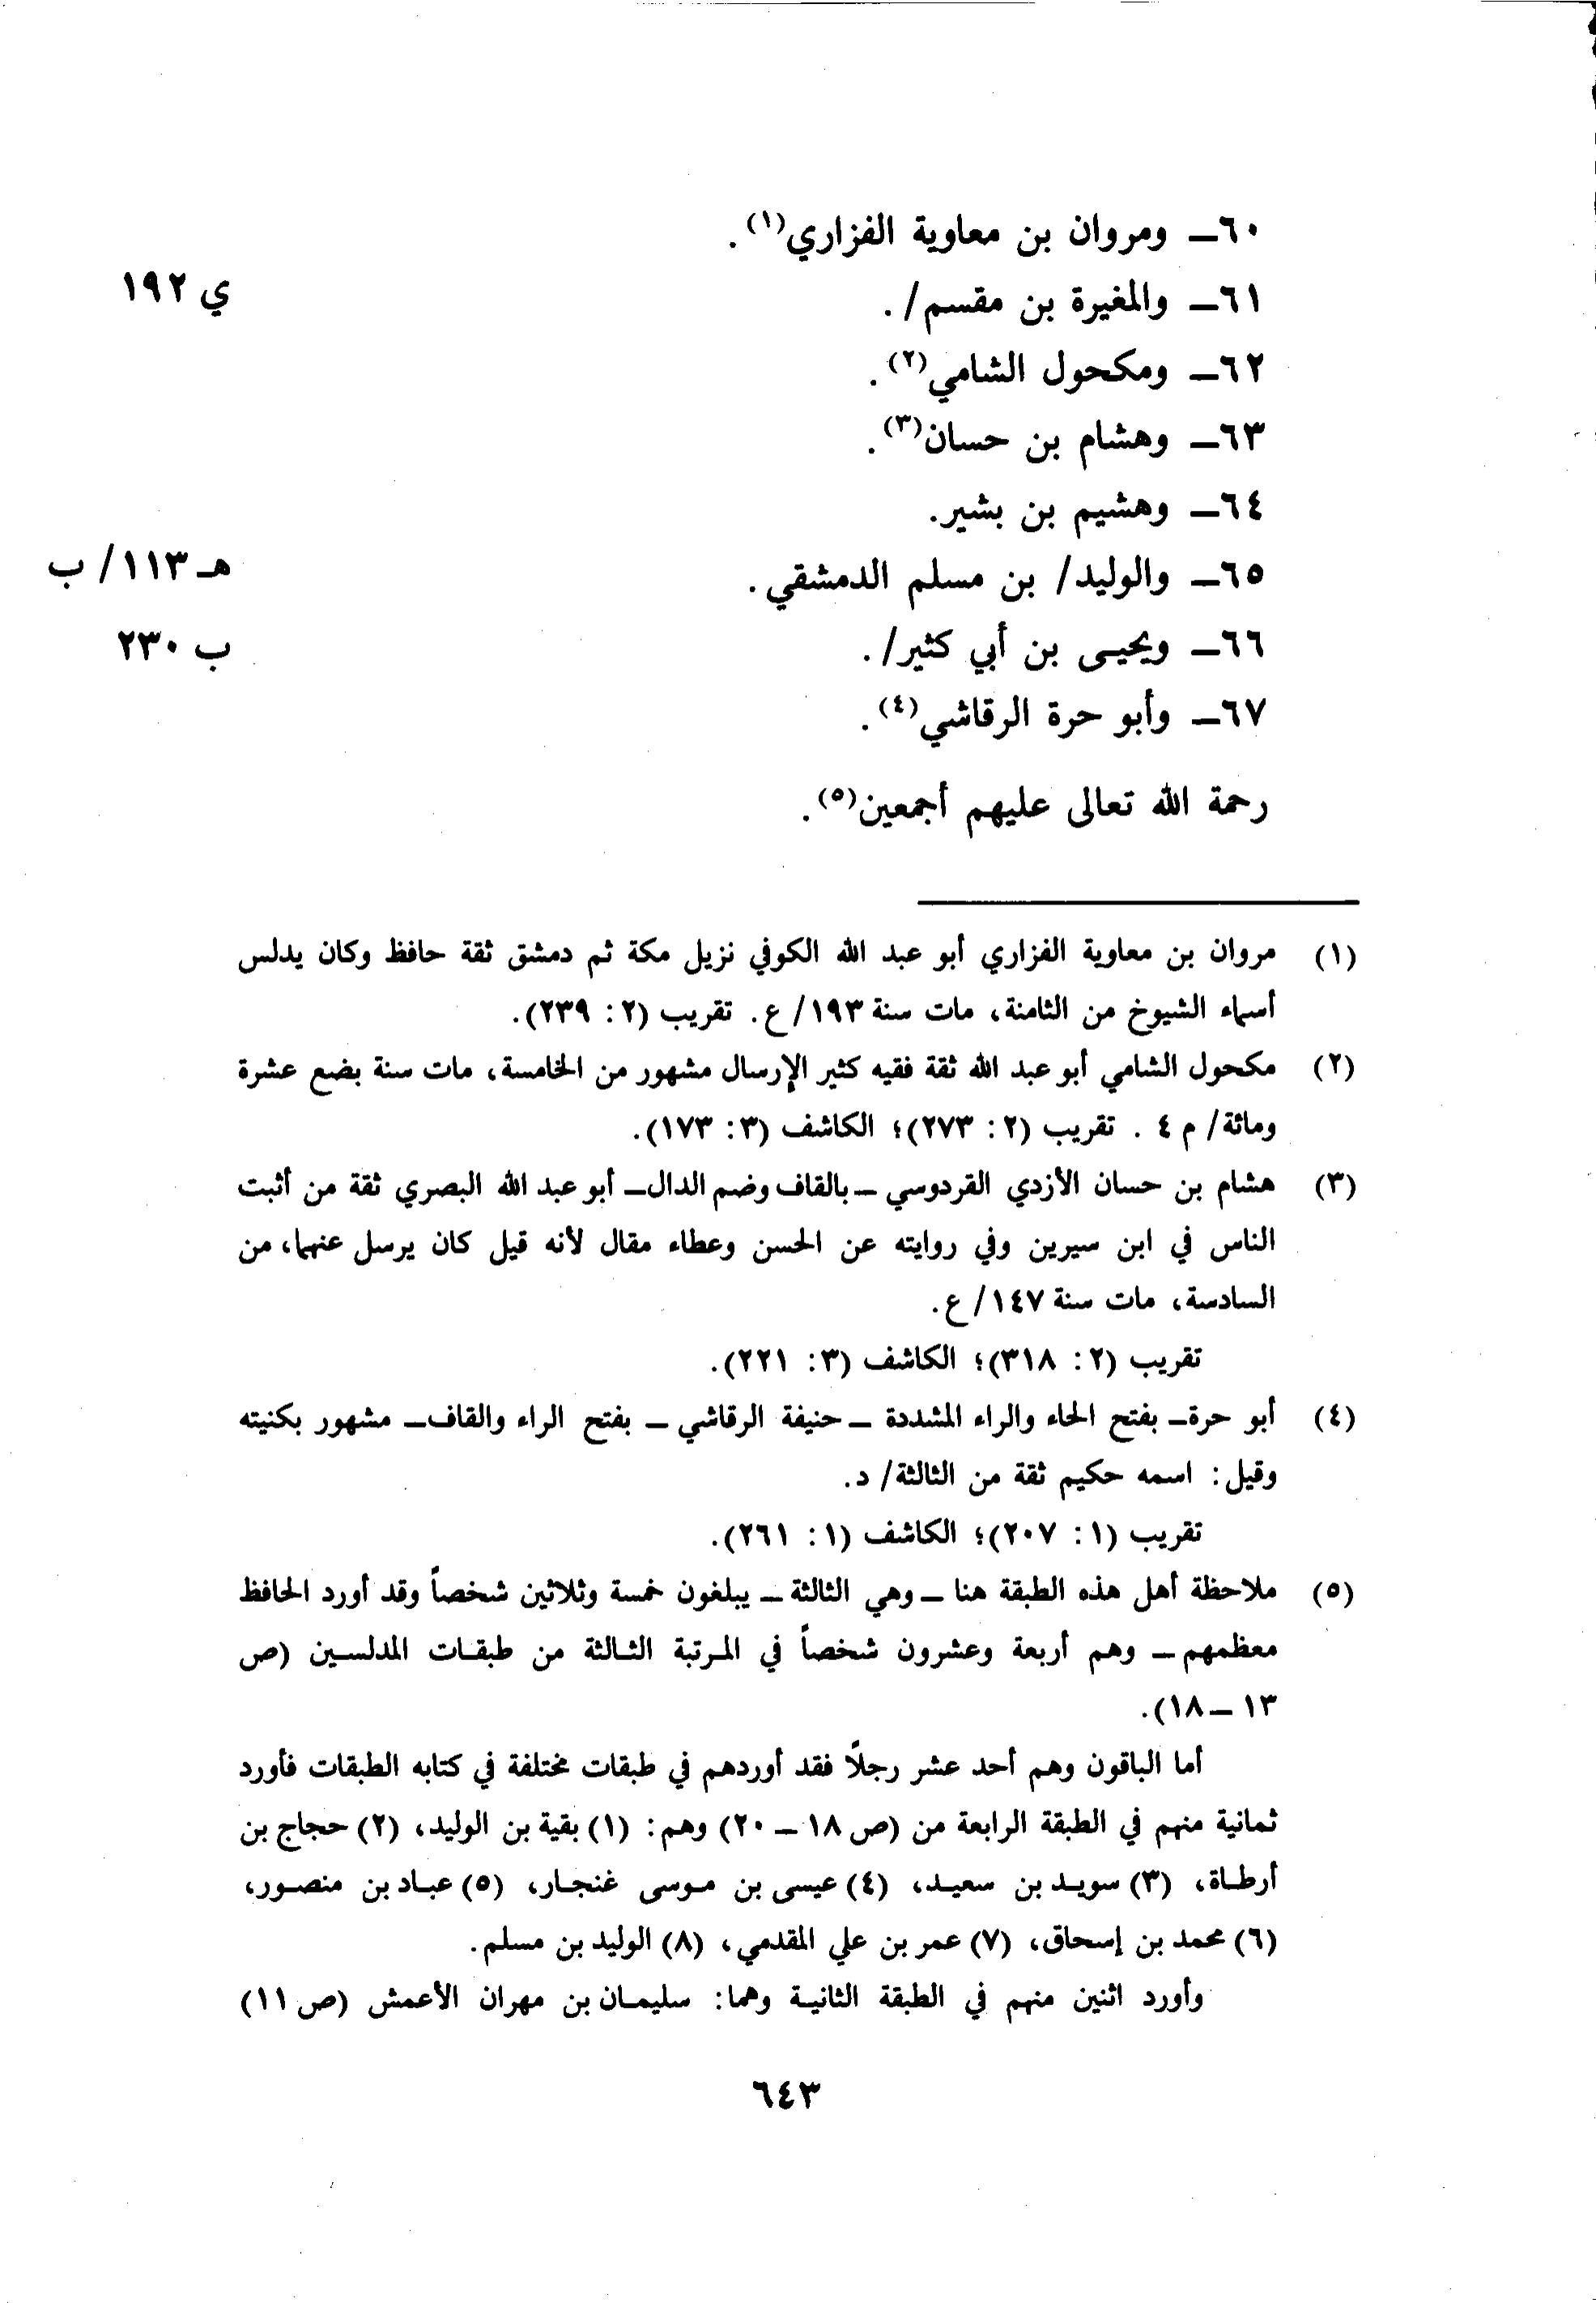 ٦٠ــ ومروان بن معاوية الفزاري(١).
٦١ــ والمغيرة بن مقسم/.
ي ١٩٢
٦٢ــ ومكحول الشامي(٢).
٦٣ــ وهشام بن حسان(٣).
٦٤ــ وهشيم بن بشير.
٦٥ــ والوليد/ بن مسلم الدمشقي.
هـ ١١٣/ ب
٦٦ــ ويحيى بن أبي كثير/.
ب ٢٣٠
٦٧ــ وأبو حرة الرقاشي(٤).
رحمة الله تعالى عليهم أجمعين(٥).
(١) مروان بن معاوية الفزاري أبو عبد الله الكوفي نزيل مكة ثم دمشق ثقة حافظ وكان يدلس
أسماء الشيوخ من الثامنة، مات سنة ١٩٣/ ع. تقريب (٢: ٢٣٩).
(٢) مكحول الشامي أبو عبد الله ثقة فقيه كثير الإرسال مشهور من الخامسة، مات سنة بضع عشرة
ومائة/ م ٤ . تقريب (٢: ٢٧٣)؛ الكاشف (٣: ١٧٣).
(٣) هشام بن حسان الأزدي القردوسي ــ بالقاف وضم الدال ــ أبو عبد الله البصري ثقة من أثبت
الناس في ابن سيرين وفي روايته عن الحسن وعطاء مقال لأنه قيل كان يرسل عنهما، من
السادسة، مات سنة ١٤٧/ ع.
تقريب (٢: ٣١٨)؛ الكاشف (٣: ٢٢١).
(٤) أبو حرة ــ بفتح الحاء والراء المشددة ــ حنيفة الرقاشي ــ بفتح الراء والقاف ــ مشهور بكنيته
وقيل: اسمه حكيم ثقة من الثالثة/ د.
تقريب (١: ٢٠٧)؛ الكاشف (١: ٢٦١).
(٥) ملاحظة أهل هذه الطبقة هنا ــ وهي الثالثة ــ يبلغون خمسة وثلاثين شخصاً وقد أورد الحافظ
معظمهم ــ وهم أربعة وعشرون شخصاً في المرتبة الثالثة من طبقات المدلسين (ص
١٣ ــ ١٨).
أما الباقون وهم أحد عشر رجلاً فقد أوردهم في طبقات مختلفة في كتابه الطبقات فأورد
ثمانية منهم في الطبقة الرابعة من (ص ١٨ ــ ٢٠) وهم: (١) بقية بن الوليد، (٢) حجاج بن
أرطاة، (٣) سويد بن سعيد، (٤) عيسى بن موسى غنجار، (٥) عباد بن منصور،
(٦) محمد بن إسحاق، (٧) عمر بن علي المقدمي، (٨) الوليد بن مسلم.
وأورد اثنين منهم في الطبقة الثانية وهما: سليمان بن مهران الأعمش (ص ١١)
٦٤٣